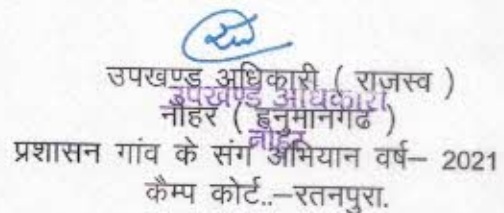 उपखण्ड अधिकारी ( राजस्व )
उपखण्ड अधिकारी
नोहर ( हनुमानगढ )
नोहर
प्रशासन गांव के संग अभियान वर्ष– 2021
कैम्प कोर्ट..–रतनपुरा.